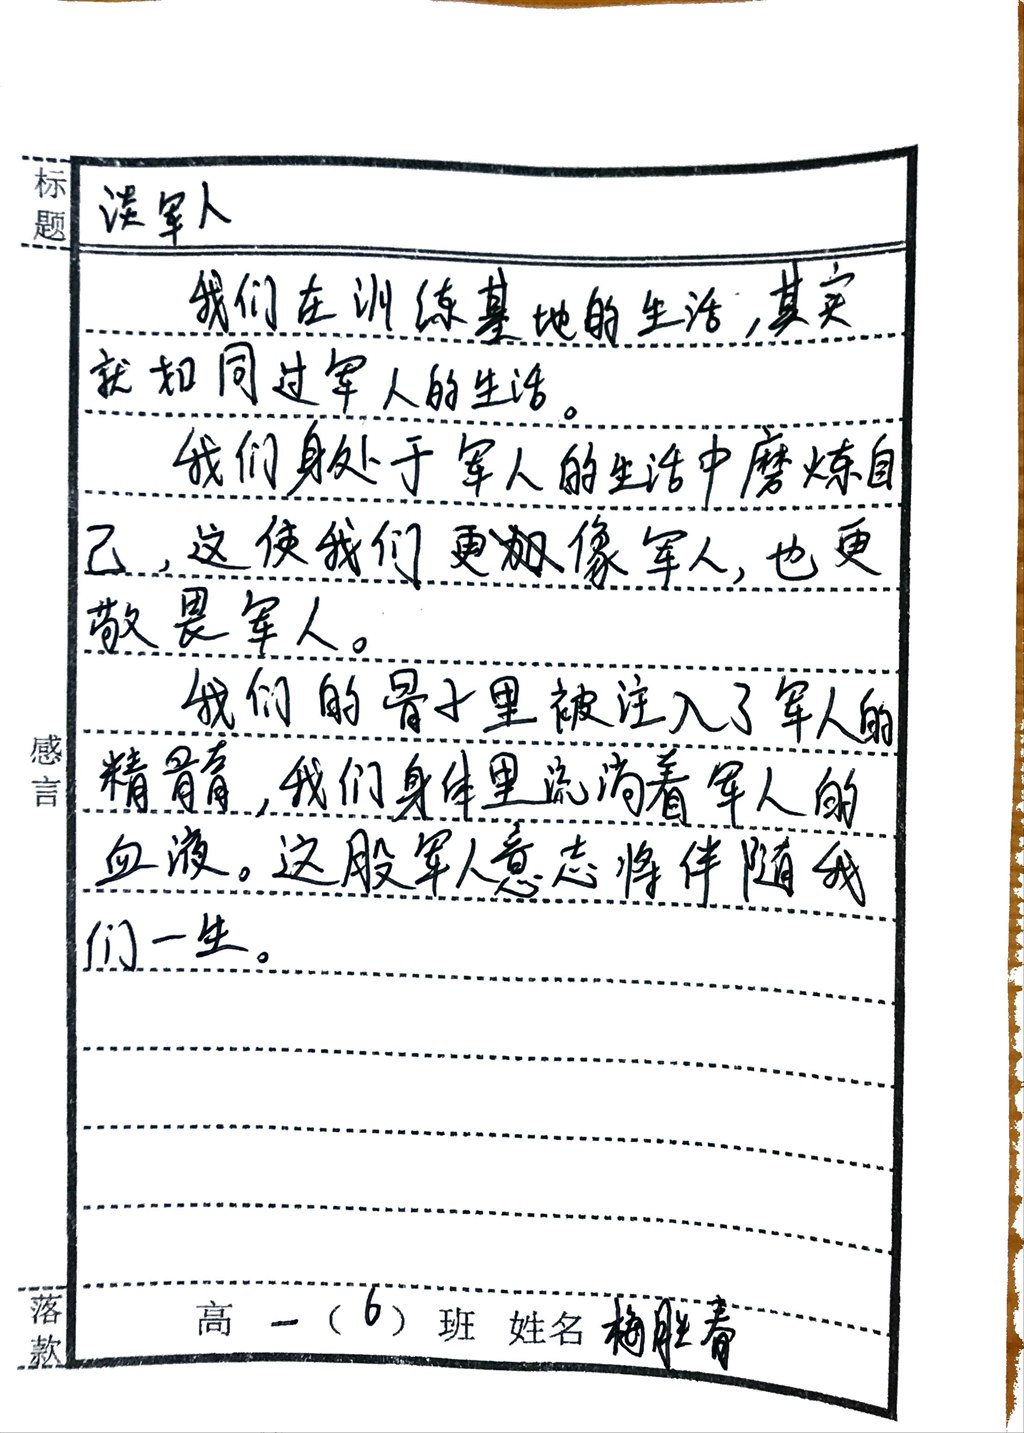 标题
淡军人
我们在训练基地的生活,其实
就如同过军人的生活。
我们身处于军人的生活中磨炼自
己,这使我们更像军人,也更
敬畏军人。
我们的骨子里被注入了军人的
精髓,我们身体里流淌着军人的
血液。这股军人意志将伴随我
们一生。
感言
落款
高一(6)班 姓名 梅胜春